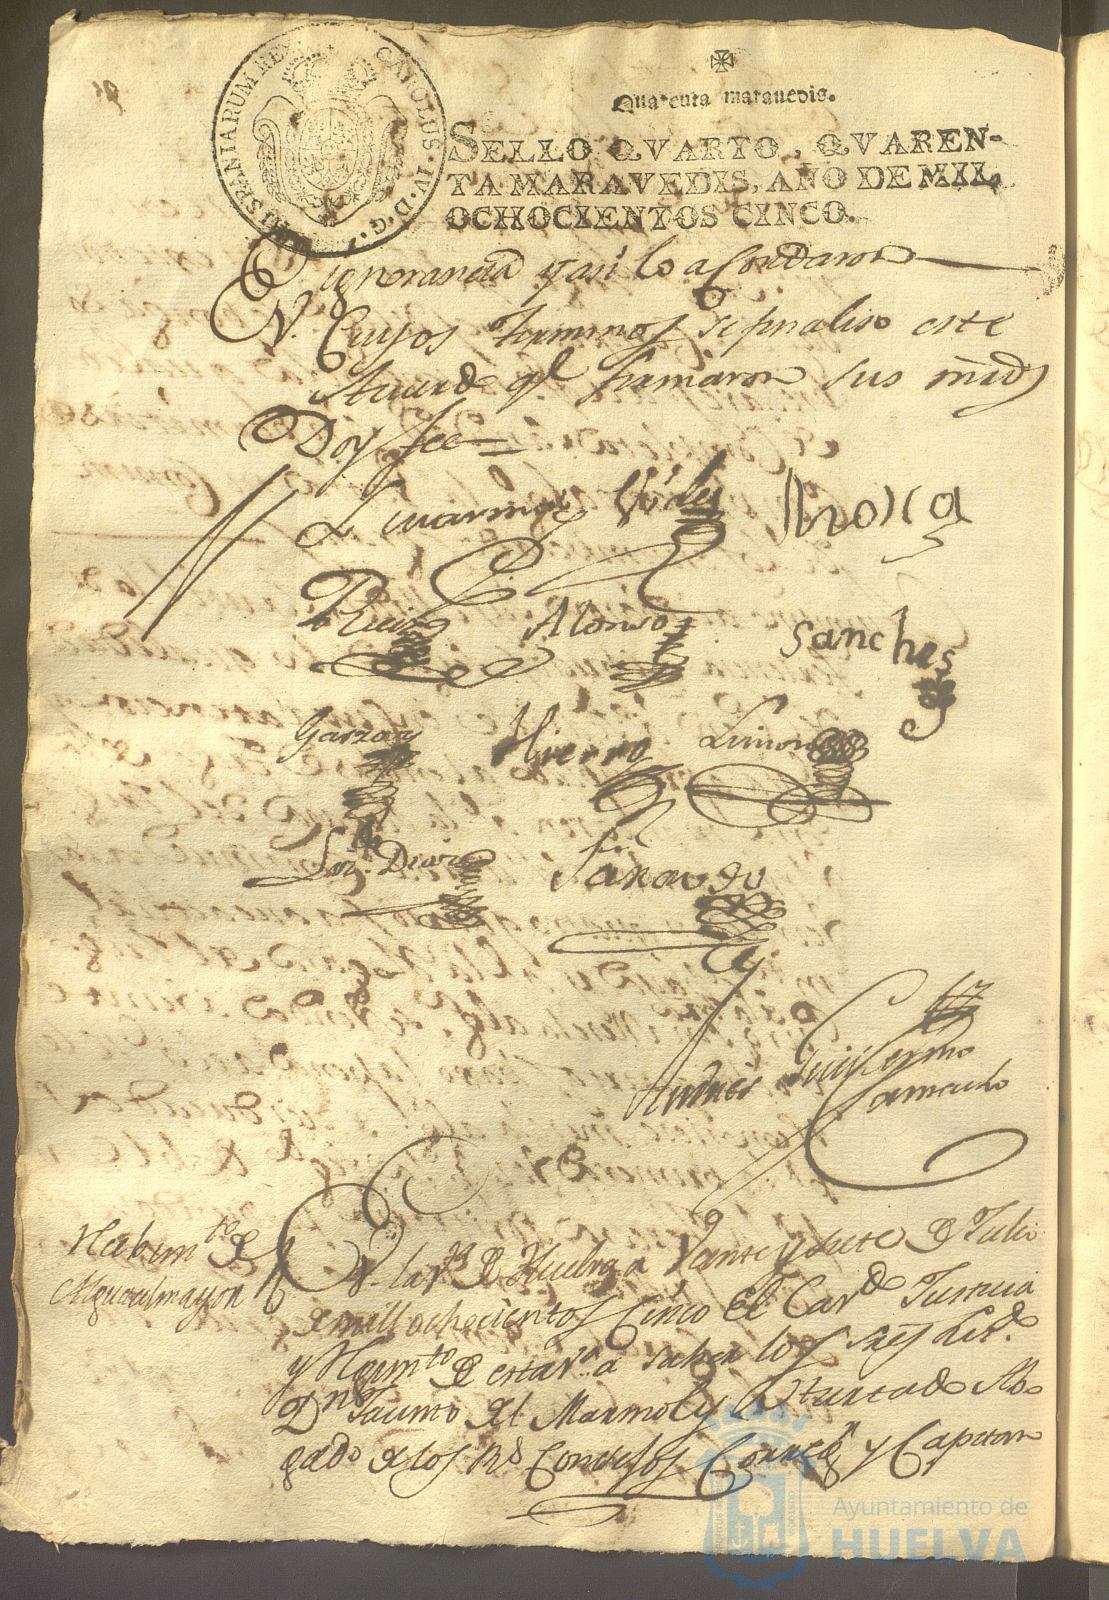 HISPANIARUM REX CAROLUS·IV·D·G·
Quarenta marauedis.
SELLO QVARTO, QVAREN-
TA MARAVEDIS, AÑO DE MIL
OCHOCIENTOS CINCO.
ignorancia y asi lo acordaron
En Cuyos terminos se finaliso este
Acuerdo qe firmaron sus mrds
Doy fee =
Ldo Marmol
Ruiz Alonso Sanches
Garzon Hierro Limon
Diaz
Andres Guillermo
Camacho
Habimto de
Alguacil mayor
En la va de Huelva a Vante y siete de Julio
de mill ochocientos cinco el Cavdo Justicia
y Rejimto de esta va a saber los sres Licdo
Dn Jacinto del Marmol y Hurtado Abo-
gado de los Rs Consejos Correxr y Capitan
Ayuntamiento de
HUELVA